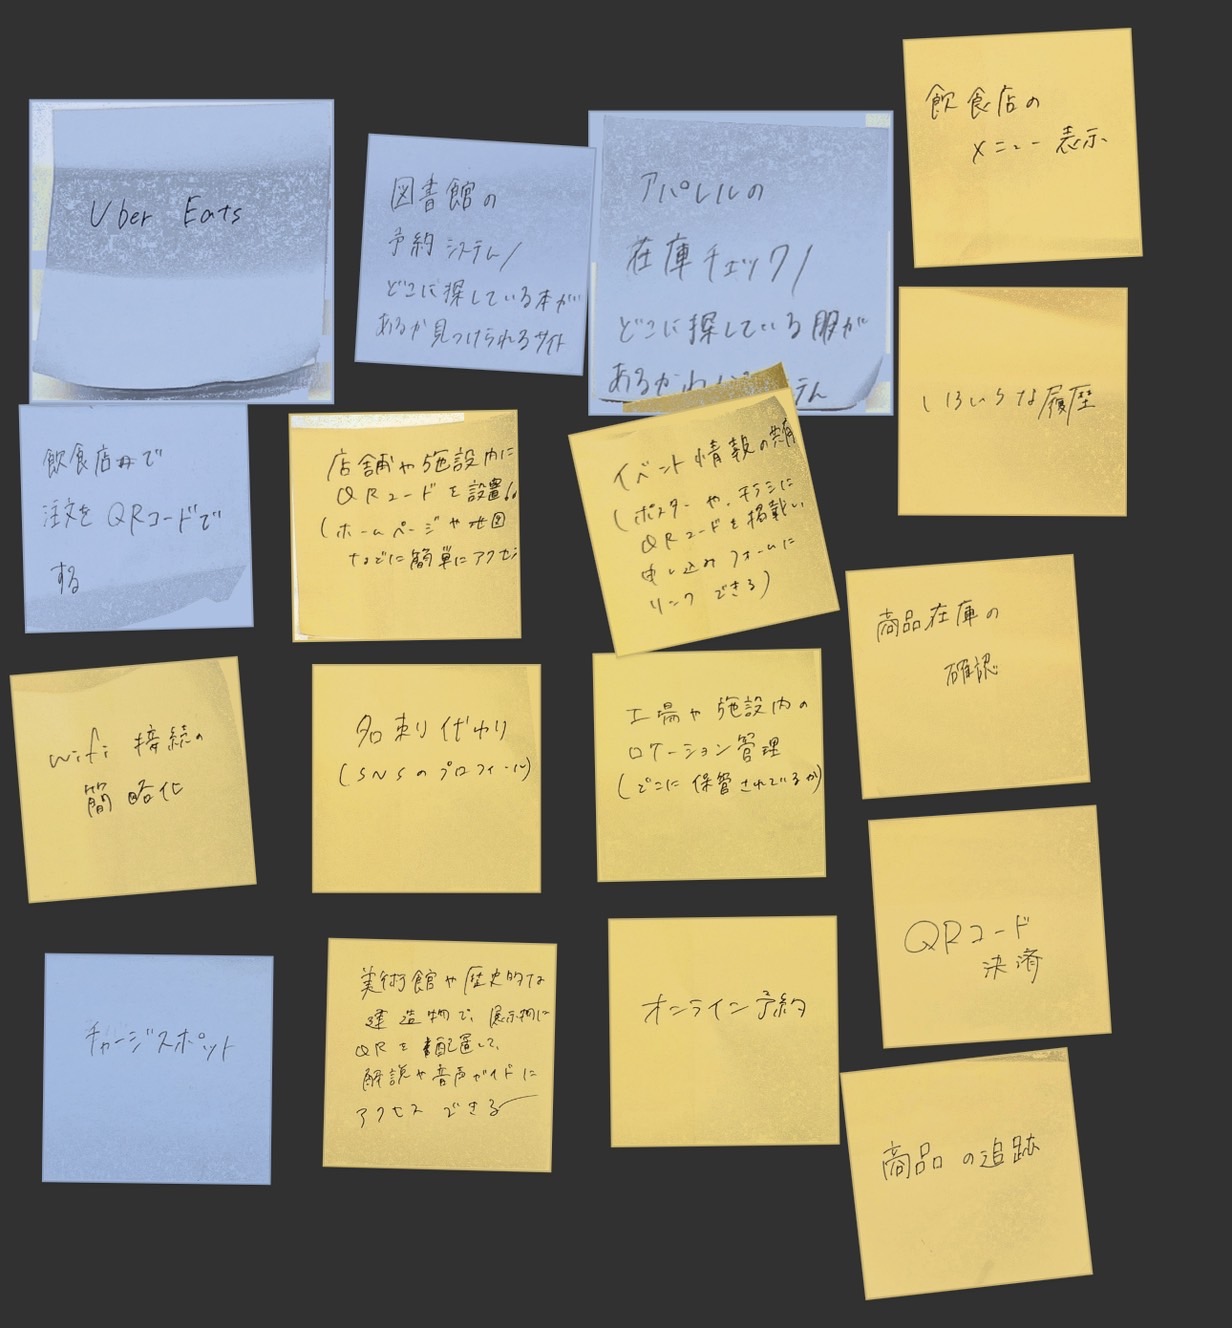 Uber Eats
図書館の
予約システム/
どこに探している本が
あるか見つけられるサイト
アパレルの
在庫チェック/
どこに探している服が
あるかわ
テム
飲食店の
メニュー表示
いろいろな履歴
飲食店内で
注文をQRコードで
する
店舗や施設内に
QRコードを設置
(ホームページや地図
などに簡単にアクセス
イベント情報の
(ポスターや、チラシに
QRコードを掲載し
申し込みフォームに
リンクできる)
商品在庫の
確認
wifi 接続の
簡略化
名刺代わり
(SNSのプロフィール)
工場や施設内の
ロケーション管理
(どこに保管されているか)
QRコード
決済
チャージスポット
美術館や歴史的な
建造物で、展示物に
QRを配置して、
解説や音声ガイドに
アクセスできる
オンライン予約
商品の追跡